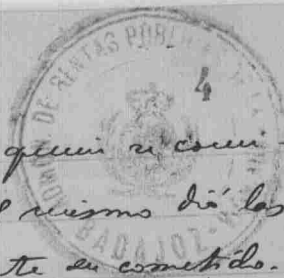 ADMON. DE RENTAS PÚBLICAS DE LA
BADAJOZ
4
quien se comi-
mismo dió las
te su cometido.